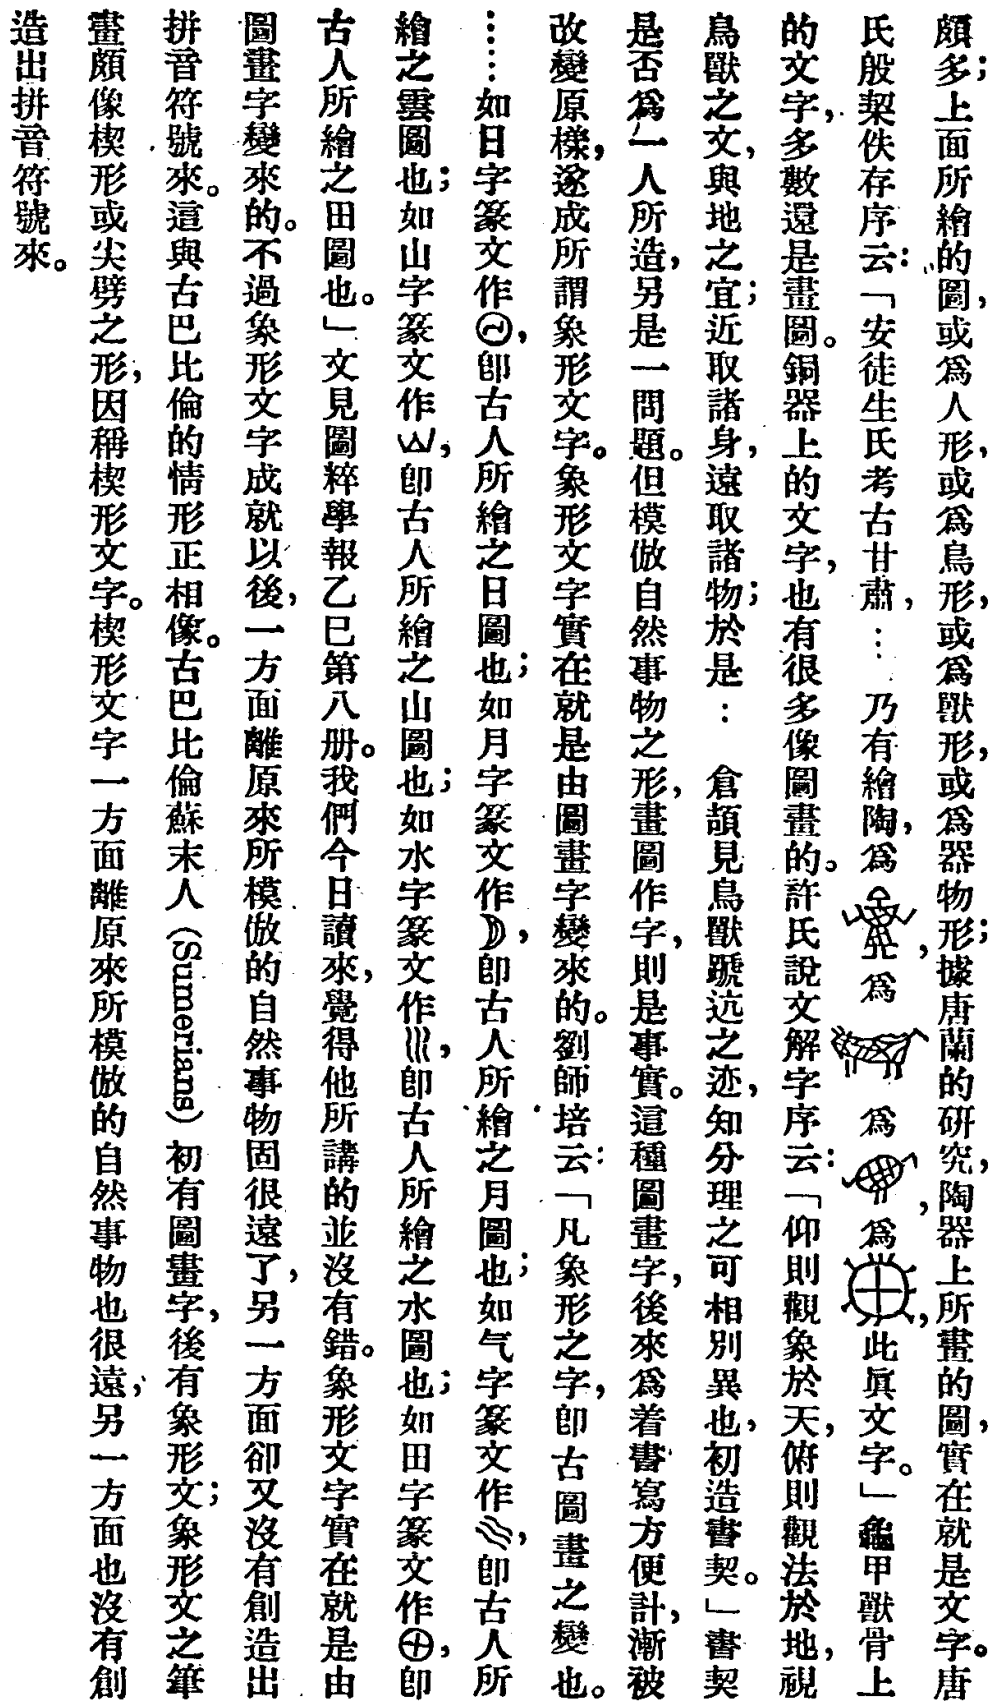 頗多；上面所繪的圖，或爲人形，或爲鳥形，或爲獸形，或爲器物形；據唐蘭的研究，陶器上所畫的圖，實在就是文字。唐
氏殷契佚存序云：「安徒生氏考古甘肅，… 乃有繪陶，爲，爲 爲，爲，此眞文字。」龜甲獸骨上
的文字，多數還是畫圖。銅器上的文字，也有很多像圖畫的。許氏說文解字序云：「仰則觀象於天，俯則觀法於地，視
鳥獸之文，與地之宜；近取諸身，遠取諸物；於是： 倉頡見鳥獸蹏迒之迹，知分理之可相別異也，初造書契。」書契
是否爲一人所造，另是一問題。但模倣自然事物之形，畫圖作字，則是事實。這種圖畫字，後來爲着書寫方便計，漸被
改變原樣，遂成所謂象形文字。象形文字實在就是由圖畫字變來的。劉師培云：「凡象形之字，卽古圖畫之變也。
……如日字篆文作，卽古人所繪之日圖也；如月字篆文作，卽古人所繪之月圖也；如气字篆文作，卽古人所
繪之雲圖也；如山字篆文作，卽古人所繪之山圖也；如水字篆文作，卽古人所繪之水圖也；如田字篆文作，卽
古人所繪之田圖也。」文見國粹學報乙巳第八册。我們今日讀來，覺得他所講的並沒有錯。象形文字實在就是由
圖畫字變來的。不過象形文字成就以後，一方面離原來所模倣的自然事物固很遠了，另一方面卻又沒有創造出
拼音符號來。這與古巴比倫的情形正相像。古巴比倫蘇末人(Sumerians)初有圖畫字，後有象形文；象形文之筆
畫頗像楔形或尖劈之形，因稱楔形文字。楔形文字一方面離原來所模倣的自然事物也很遠，另一方面也沒有創
造出拼音符號來。